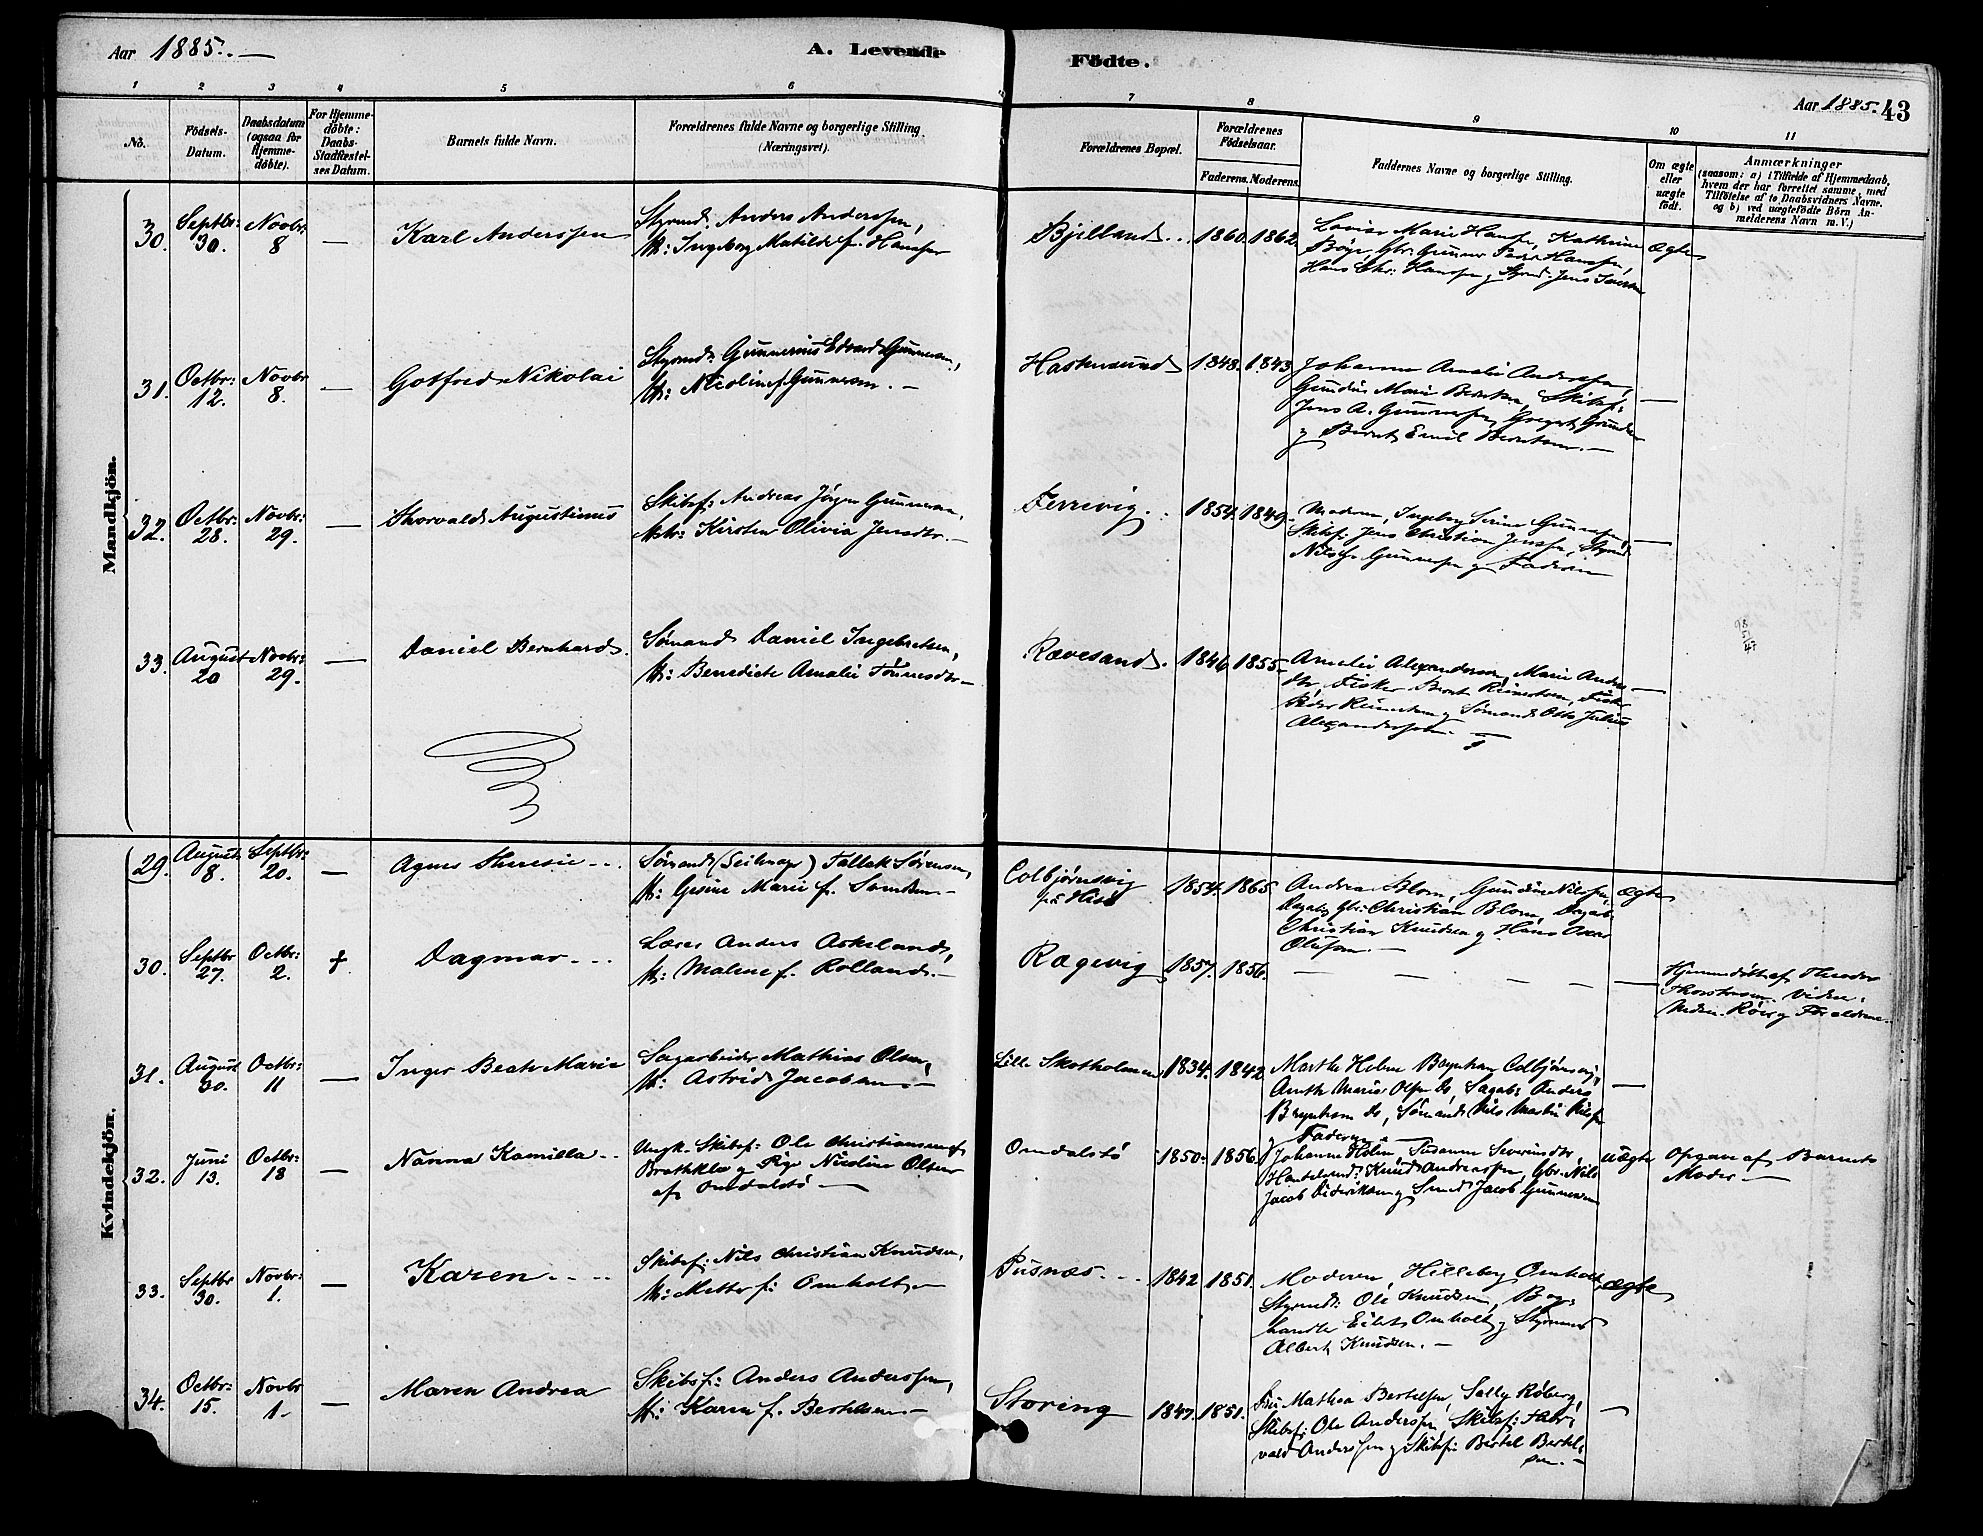 Aar 1885. —
A. Levende
Födte.
Aar 1885. 43
1 2 3 4 5 6 7 8 9 10 11
No.
Födsels-
Datum.
Daabsdatum
(ogsaa for
Hjemme-
döbte).
For Hjemme-
döbte:
Daabs-
Stadfæstel-
ses Datum.
Barnets fulde Navn.
Forældrenes fulde Navne og borgerlige Stilling
(Næringsvei).
Forældrenes Bopæl.
Forældrenes
Födselsaar.
Faderens. Moderens.
Faddernes Navne og borgerlige Stilling.
Om ægte
eller
uægte
födt.
Anmærkninger
(saasom: a) i Tilfælde af Hjemmedaab,
hvem der har forrettet samme, med
Tilföielse af to Daabsvidners Navne,
og b) ved uægtefödte Börn An-
melderens Navn m. V.)
Mandkjön.
30. Septbr: 30. Novbr: 8 —
Karl Anderssen
Styrmd: Anders Anderssen,
H: Ingeborg Matilde f. Hanssen
Bjelland . . 1860. 1862
Lovise Marie Hansen, Kathrine
Böye, Gbr: Gunner Peder Hanssen,
Hans Chr: Hanssen g Styrmd: Jens
ægte
31. Octbr: 12. Novbr 8. —
Gotfred Nikolai
Styrmd: Gunnerius Edvard Gunnersen,
H: Nicoline f. Gunnersen. —
Hastensund 1848. 1843
Johanne Amalie Anderssen,
Gundine Marie Berntsen, Skibsf:
Jens A. Gunnersen,
g Bernt Emil Berntsen. —
—
32. Octbr: 28. Novbr: 29. —
Thorvald Augustinus
Skibsf: Andreas Jörgen Gunnersen,
H: Kirsten Olivia Jensdtr. —
Ferrevig. . 1854. 1849.
Moderen, Ingeborg Serine Gunnersen,
Skibsf: Jens Christian Jenssen, Styrmd:
Nils Gunnersen g Faderen
—
33. August 20 Novbr: 29. —
Daniel Bernhard.
Sömand Daniel Ingebretsen,
H: Benedicte Amalie Tönnesdtr —
Rævesand. 1846 1855
Amalie Alexandersen, Marie Anders-
dtr, Fisker Bernt Reinertsen, Fisker
Peder Reinertsen g Sömand Otto Julius
Alexandersen. —
—
Kvindekjön.
29. August 8. Septbr: 20. —
Agnes Theresie - . .
Sömand (Seilmager) Tallak Sörensen,
H: Gesine Marie f. Svendsen —
Colbjörnsvig
på Hisö
1854. 1865
Andrea Blom, Gundine Nilssen,
Dagarb: Gbr: Christian Blom, Dagarb:
Christian Knudsen g Hans Oscar
Olufsen. —
ægte
30. Septbr 27. Octbr: 2. †
Dagmar - . .
Læser Anders Askeland,
H: Malene f. Rolland. —
Rægevig 1857. 1856.
— — — — —
Hjemmedöbt af Theodor
Thorstensen. Vidner:
Meden. Röer g Forældrene. —
31. August 30. Octbr: 11 —
Inger Beate Marie
Sagarbeider Mathias Olsen,
H: Astrid Jacobsen. —
Lille Skotholmen 1834. 1842
Marthe Helene Bryntsen Colbjörnsvig,
Anth: Marie Olsen do, Sagarb: Anders
Bryntsen do, Sömand Nils Martin Nilsen
g Faderen —
—
32. Juni 13. Octbr: 18 —
Nanna Kamilla - .
Ungk. Skibsf: Ole Christiansen af
Brathklev g Pige Nicoline Olsen
af Omdalsö —
Omdalsö 1850. 1856.
Johanne Holm, Susanne Severindtr,
Handelsmd: Knud Andreassen, Gbr: Nils
Jacob Didriksen g Smed Jacob Gunnersen
uægte
Opgave af Barnets
Moder —
33. Septbr 30. Novbr: 1. —
Karen - . . .
Skibsf: Nils Christian Knudsen,
H: Mette f: Omholt. —
Pusnæs. . . 1842 1851.
Moderen, Hilleborg Omholt,
Styrmd: Ole Knudsen, Bog-
handler Eilert Omholt g Styrmand
Albert Knudsen. —
ægte
34. Octbr: 15. Novbr 1. —
Maren Andrea
Skibsf: Anders Anderssen,
H: Karen f. Bertelsen —
Storing 1847. 1851.
Fru Mathea Bertelsen, Sally Röberg,
Skibsf: Ole Anderssen, Skibsf: Thor-
vald Anderssen g Skibsf: Bertel Bertel-
sen. —
—